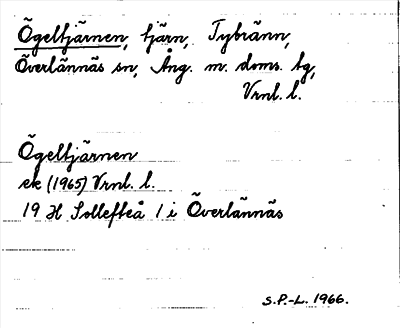 Ögeltjärnen, tjärn, Tybränn,
Överlännäs sn, Ång. m. doms. tg,
Vrnl. l.
Ögeltjärnen
ek (1965) Vrnl. l.
19 H Sollefteå 1 i Överlännäs
S.P.-L. 1966.